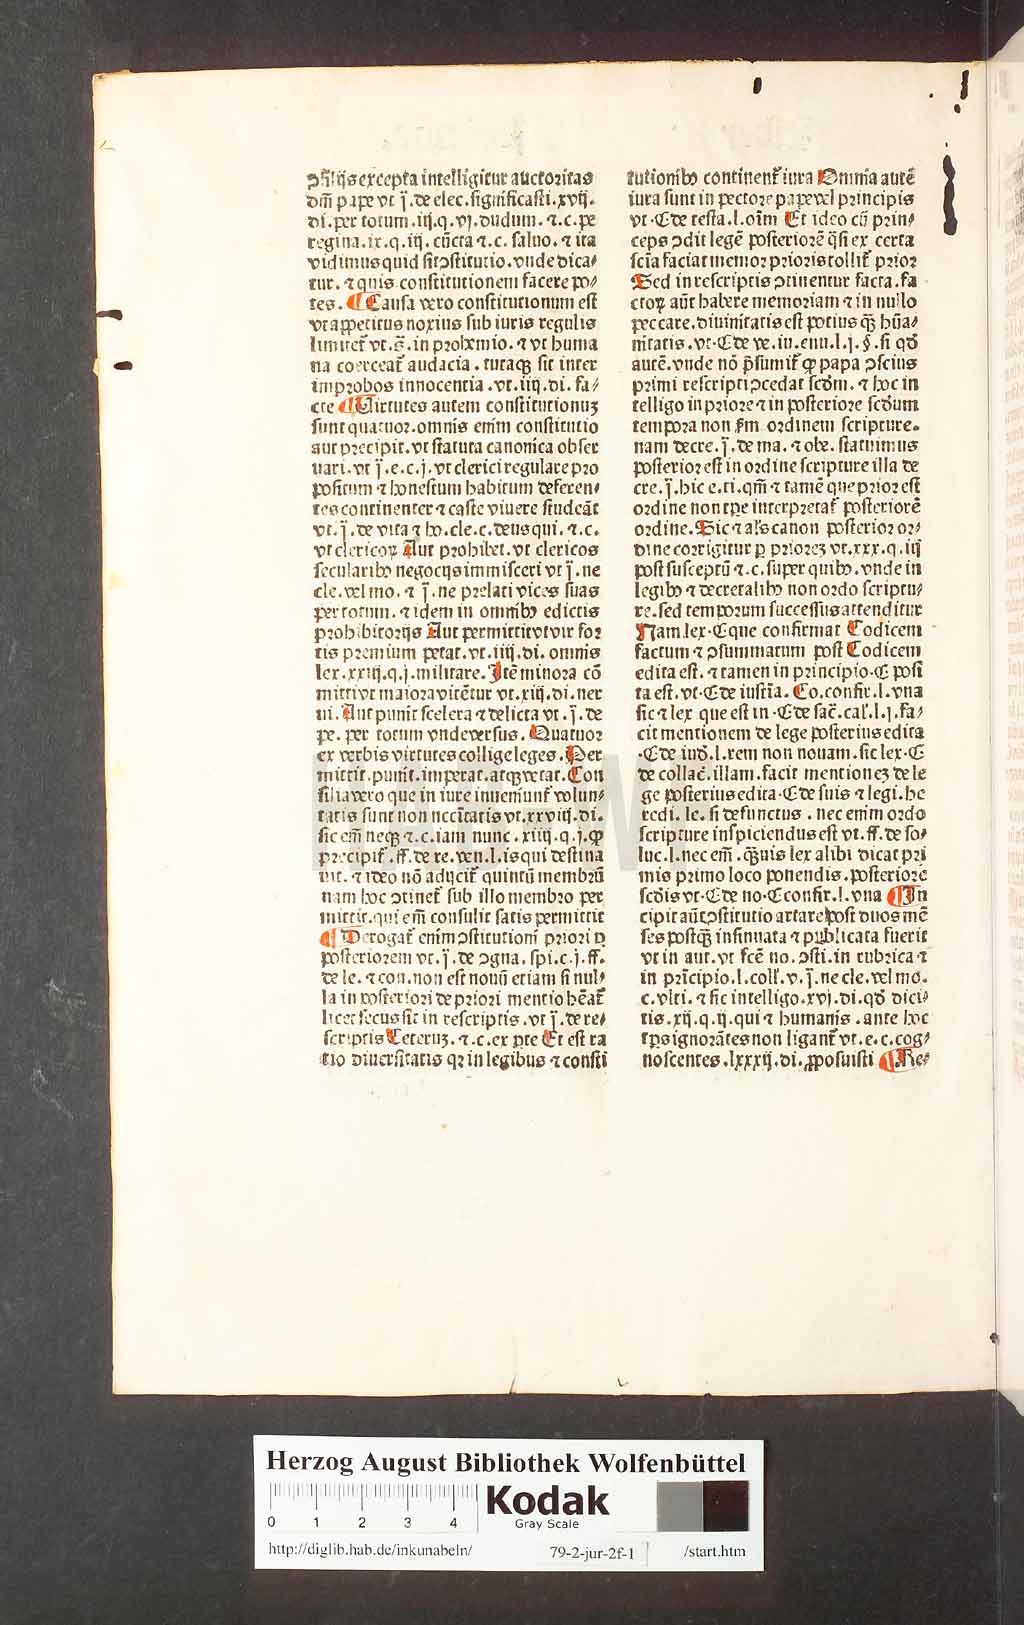 ↄñ ijs excepta intelligitur auctoritas
dm̄ pape vt j̄. de elec. significasti. xvij.
di. per totum. iij. q. vj. dudum. ⁊ c. pe
regina. ix. q. iij. cūcta ⁊ c. saluo. ⁊ ita
vidimus quid sit ↄstitutio. vnde dica⸗
tur. ⁊ quis constitutionem facere po⸗
tes. ¶ Causa vero constitutionum est
vt appetitus noxius sub iuris regulis
limitet᷑ vt. s̄. in prohemio. ⁊ vt huma
na coerceat᷑ audacia. tutaqꝫ sit inter
improbos innocentia. vt. iiij. di. fa⸗
cte ¶ Uirtutes autem constitutionuꝫ
sunt quatuor. omnis enim constitutio
aut precipit. vt statuta canonica obser
uari. vt j̄. e. c. j. vt clerici regulare pro
positum ⁊ honestum habitum deferen⸗
tes continenter ⁊ caste viuere studeāt
vt. j̄. de vita ⁊ ho. cle. c. deus qui. ⁊. c.
vt clericoꝝ Aut prohibet. vt clericos
secularibꝰ negocijs immisceri vt j̄. ne
cle. vel mo. ⁊ j̄. ne prelati vices suas
per totum. ⁊ idem in omnibꝰ edictis
prohibitorijs Aut permittit vt vir for
tis premium petat. vt. iiij. di. omnis
lex. xxiij. q. j. militare. Itē minora cō
mittit vt maiora vitētur vt. xiij. di. ner
ui. Aut punit scelera ⁊ delicta vt. j̄. de
pe. per totum vnde versus. Quatuor
ex verbis virtutes collige leges. Per
mittit. punit. imperat. atqꝫ vetat. Con
silia vero que in iure inueniunt᷑ volun⸗
tatis sunt non nccītatis vt. xxviij. di.
sic em̄ neqꝫ ⁊ c. iam nunc. xiiij. q. j. ꝙ
precipit᷑. ff. de re. ven. l. is qui destina
uit. ⁊ ideo nō adijcit᷑ quintū membrū
nam hoc ↄtinet᷑ sub illo membro per
mittit. qui em̄ consulit satis permittit
¶ Derogat᷑ enim ↄstitutioni priori ꝑ
posteriorem vt. j̄. de ↄgna. spi. c. j. ff.
de le. ⁊ con. non est nouū etiam si nul⸗
la in posteriori de priori mentio hēat᷑
licet secus sit in rescriptis. vt j̄. de re⸗
scriptis Ceteruꝫ. ⁊ c. ex ꝑte Et est ra
tio diuersitatis qꝛ in legibus ⁊ consti
tutionibꝰ continent᷑ iura Omnia autē
iura sunt in pectore pape vel principis
vt. C de testa. l. oīm Et ideo cū prin⸗
ceps ↄdit legē posteriorē q̄si ex certa
scīa faciat memor prioris tollit᷑ prior
Sed in rescriptis ↄtinentur facta. fa
ctoꝝ aūt habere memoriam ⁊ in nullo
peccare. diuinitatis est potius qꝫ hūa⸗
nitatis. vt. C de ve. iu. enu. l. j. §. si qd̄
autē. vnde nō p̄sumit᷑ ꝙ papa ↄscius
primi rescripti ↄcedat scd̄m. ⁊ hoc in
telligo in priore ⁊ in posteriore scd̄um
tempora non ẜm ordinem scripture.
nam decre. j̄. de ma. ⁊ obe. statuimus
posterior est in ordine scripture illa de
cre. j̄. hic e. ti. qm̄ ⁊ tamē que prior est
ordine non tp̄e interpretat᷑ posteriorē
ordine. Sic ⁊ al's canon posterior or⸗
dine corrigitur ꝑ prioreꝫ vt. xxx. q. iij
post susceptū ⁊. c. super quibꝰ. vnde in
legibꝰ ⁊ decretalibꝰ non ordo scriptu⸗
re. sed temporum successus attenditur
Nam lex. C que confirmat Codicem
factum ⁊ ↄsummatum post Codicem
edita est. ⁊ tamen in principio. C posi
ta est. vt. C de iustīa. Co. confir. l. vna
sic ⁊ lex que est in. C de sac̄. cal'. l. j. fa⸗
cit mentionem de lege posterius edita
. C de iud̄. l. rem non nouam. sic lex. C
de collac̄. illam. facit mentioneꝫ de le
ge posterius edita. C de suis ⁊ legi. he
redi. le. si defunctus. nec enim ordo
scripture inspiciendus est vt. ff. de so⸗
luc. l. nec em̄. q̄uis lex alibi dicat pri
mis primo loco ponendis. posteriore
scd̄is vt. C de no. C confir. l. vna ¶ In
cipit aūt ↄstitutio artare post duos mē
ses postqꝫ insinuata ⁊ publicata fuerit
vt in aut. vt fcē no. ↄsti. in rubrica ⁊
in prīcipio. l. coll'. v. j̄. ne cle. vel mo.
c. vlti. ⁊ sic intelligo. xvj. di. qd̄ dici⸗
tis. xij. q. ij. qui ⁊ humanis. ante hoc
tp̄s ignorātes non ligant᷑ vt. e. c. cog⸗
noscentes. lxxxij. di. ꝓposuisti ¶ Re⸗
Herzog August Bibliothek Wolfenbüttel
0 1 2 3 4
Kodak
Gray Scale
http://diglib.hab.de/inkunabeln/ 79-2-jur-2f-1 /start.htm